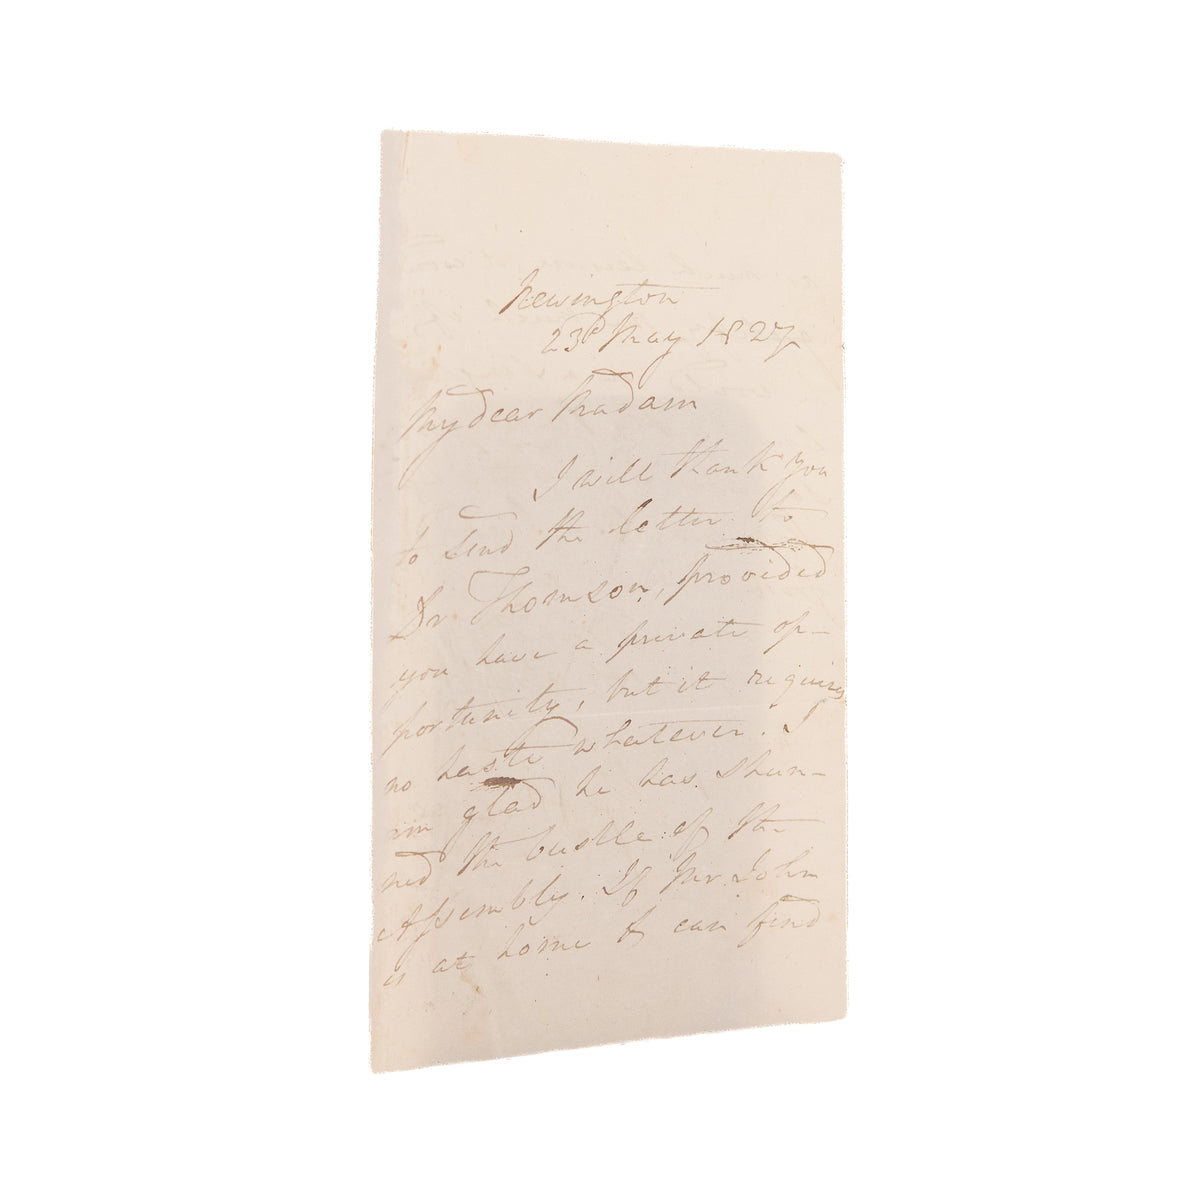 Newington
23d May 1827
My dear Madam
I will thank you
to send the letter to
Dr. Thomson, provided
you have a private op-
portunity, but it requires
no haste whatever. I
am glad he has shun-
ned the bustle of the
Assembly. If Mr. John
is at home & can find